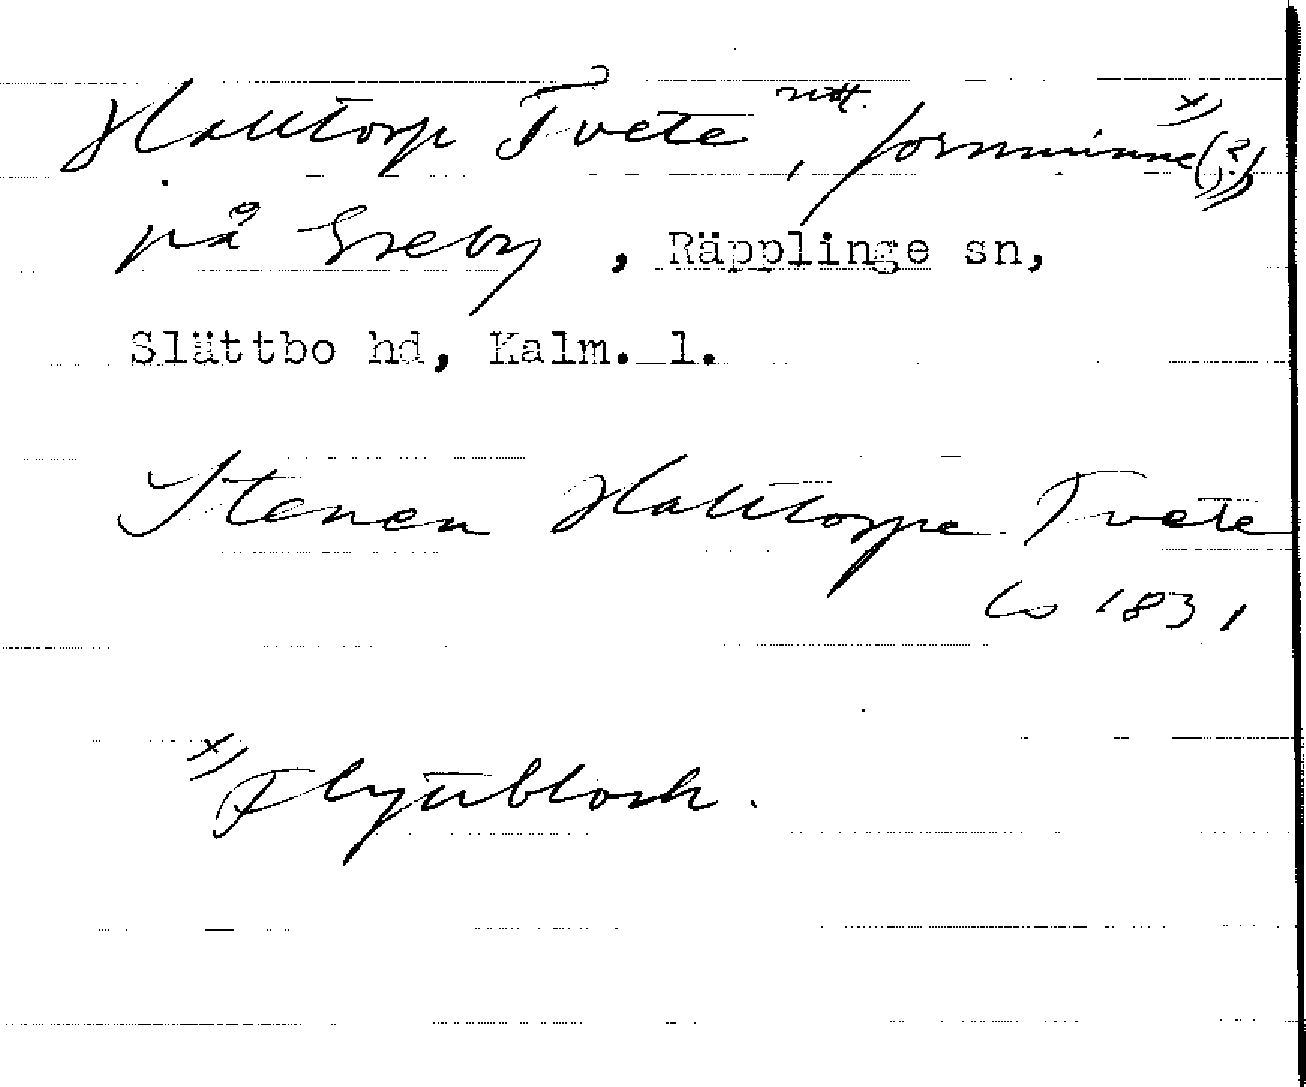 Halltorp Tvete, fornminne x) (?)
på Greby, Räpplinge sn,
Slättbo hd, Kalm. l.
Stenen Halltorpe Tvete
Lo 1831
x) Flyttblock.